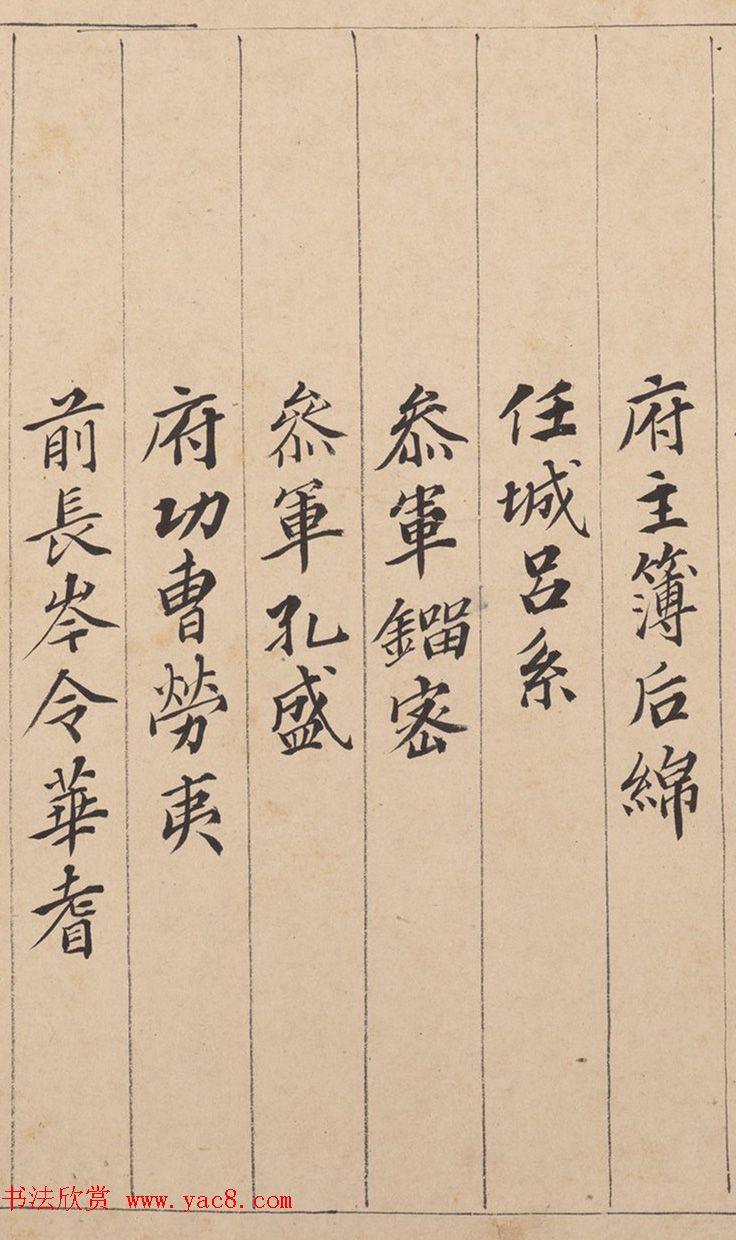 府主簿后綿
任城呂系
叅軍鎦密
叅軍孔盛
府功曹勞夷
前長岑令華耆
书法欣赏 www.yac8.com